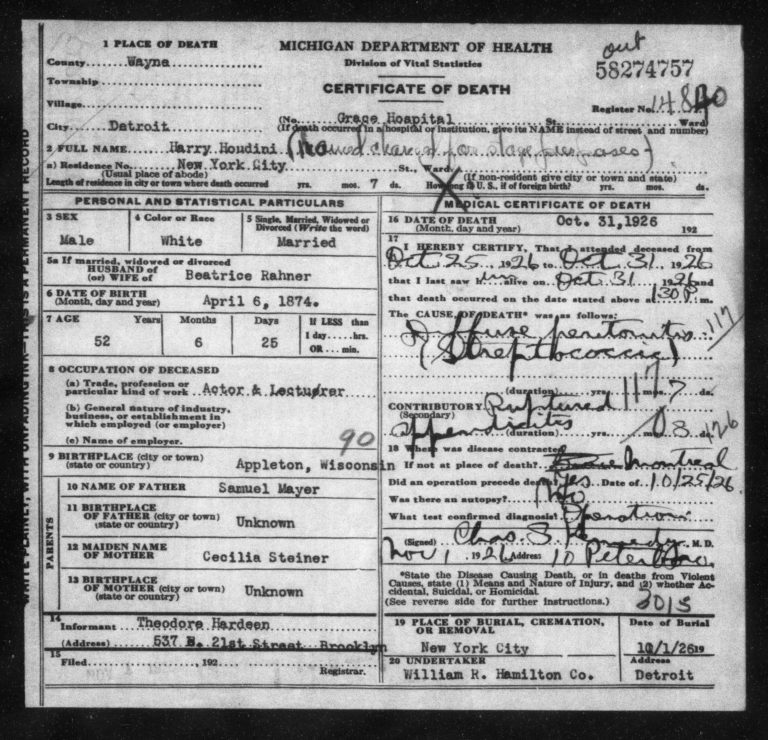 1 PLACE OF DEATH
County Wayne
Township
Village
City Detroit
MICHIGAN DEPARTMENT OF HEALTH
Division of Vital Statistics
CERTIFICATE OF DEATH
out
58274757
Register No.
(No. Grace Hospital St. Ward)
(If death occurred in a hospital or institution, give its NAME instead of street and number)
2 FULL NAME Harry Houdini (Name changed for stage purposes)
a) Residence No. New York City St., Ward.
(Usual place of abode) (If non-resident give city or town and state)
Length of residence in city or town where death occurred yrs. mos. 7 ds. How long in U.S., if of foreign birth? yrs. mos. ds.
PERSONAL AND STATISTICAL PARTICULARS
3 SEX
Male
4 Color or Race
White
5 Single, Married, Widowed or
Divorced (Write the word)
Married
5a If married, widowed or divorced
HUSBAND of
(or) WIFE of Beatrice Rahner
6 DATE OF BIRTH
(Month, day and year) April 6, 1874.
7 AGE Years Months Days If LESS than
1 day.....hrs.
OR.....min.
52 6 25
8 OCCUPATION OF DECEASED
(a) Trade, profession or
particular kind of work Actor & Lecturer
(b) General nature of industry,
business, or establishment in
which employed (or employer)
(c) Name of employer.
90
9 BIRTHPLACE (city or town)
(state or country) Appleton, Wisconsin
PARENTS
10 NAME OF FATHER Samuel Mayer
11 BIRTHPLACE
OF FATHER (city or town)
(state or country) Unknown
12 MAIDEN NAME
OF MOTHER Cecilia Steiner
13 BIRTHPLACE
OF MOTHER (city or town)
(state or country) Unknown
14
Informant Theodore Hardeen
(Address) 537 E. 21st Street Brooklyn
15
Filed, 192
Registrar.
MEDICAL CERTIFICATE OF DEATH
16 DATE OF DEATH Oct. 31, 1926
(Month, day and year) 192
17
I HEREBY CERTIFY, That I attended deceased from
Oct 25 1926 to Oct 31 1926
that I last saw him alive on Oct 31 1926 and
that death occurred on the date stated above at 130 P m.
The CAUSE OF DEATH* was as follows:
Diffuse peritonitis 117
(Streptococcic)
117
(duration) yrs. mos. 7 ds.
CONTRIBUTORY Ruptured
(Secondary)
appendicitis (duration) yrs.
18 Where was disease contracted
If not at place of death? Montreal
Did an operation precede death? Yes Date of 10/25/26
Was there an autopsy? No
What test confirmed diagnosis? Operation
(Signed) Chas. S. Kennedy, M.D.
Nov 1 1926 Address 10 Peterboro
*State the Disease Causing Death, or in deaths from Violent
Causes, state (1) Means and Nature of Injury, and (2) whether Ac-
cidental, Suicidal, or Homicidal.
(See reverse side for further instructions.)
3015
19 PLACE OF BURIAL, CREMATION,
OR REMOVAL
New York City
Date of Burial
11/1/26 19
20 UNDERTAKER
William R. Hamilton Co.
Address
Detroit
WRITE PLAINLY, WITH UNFADING INK—THIS IS A PERMANENT RECORD